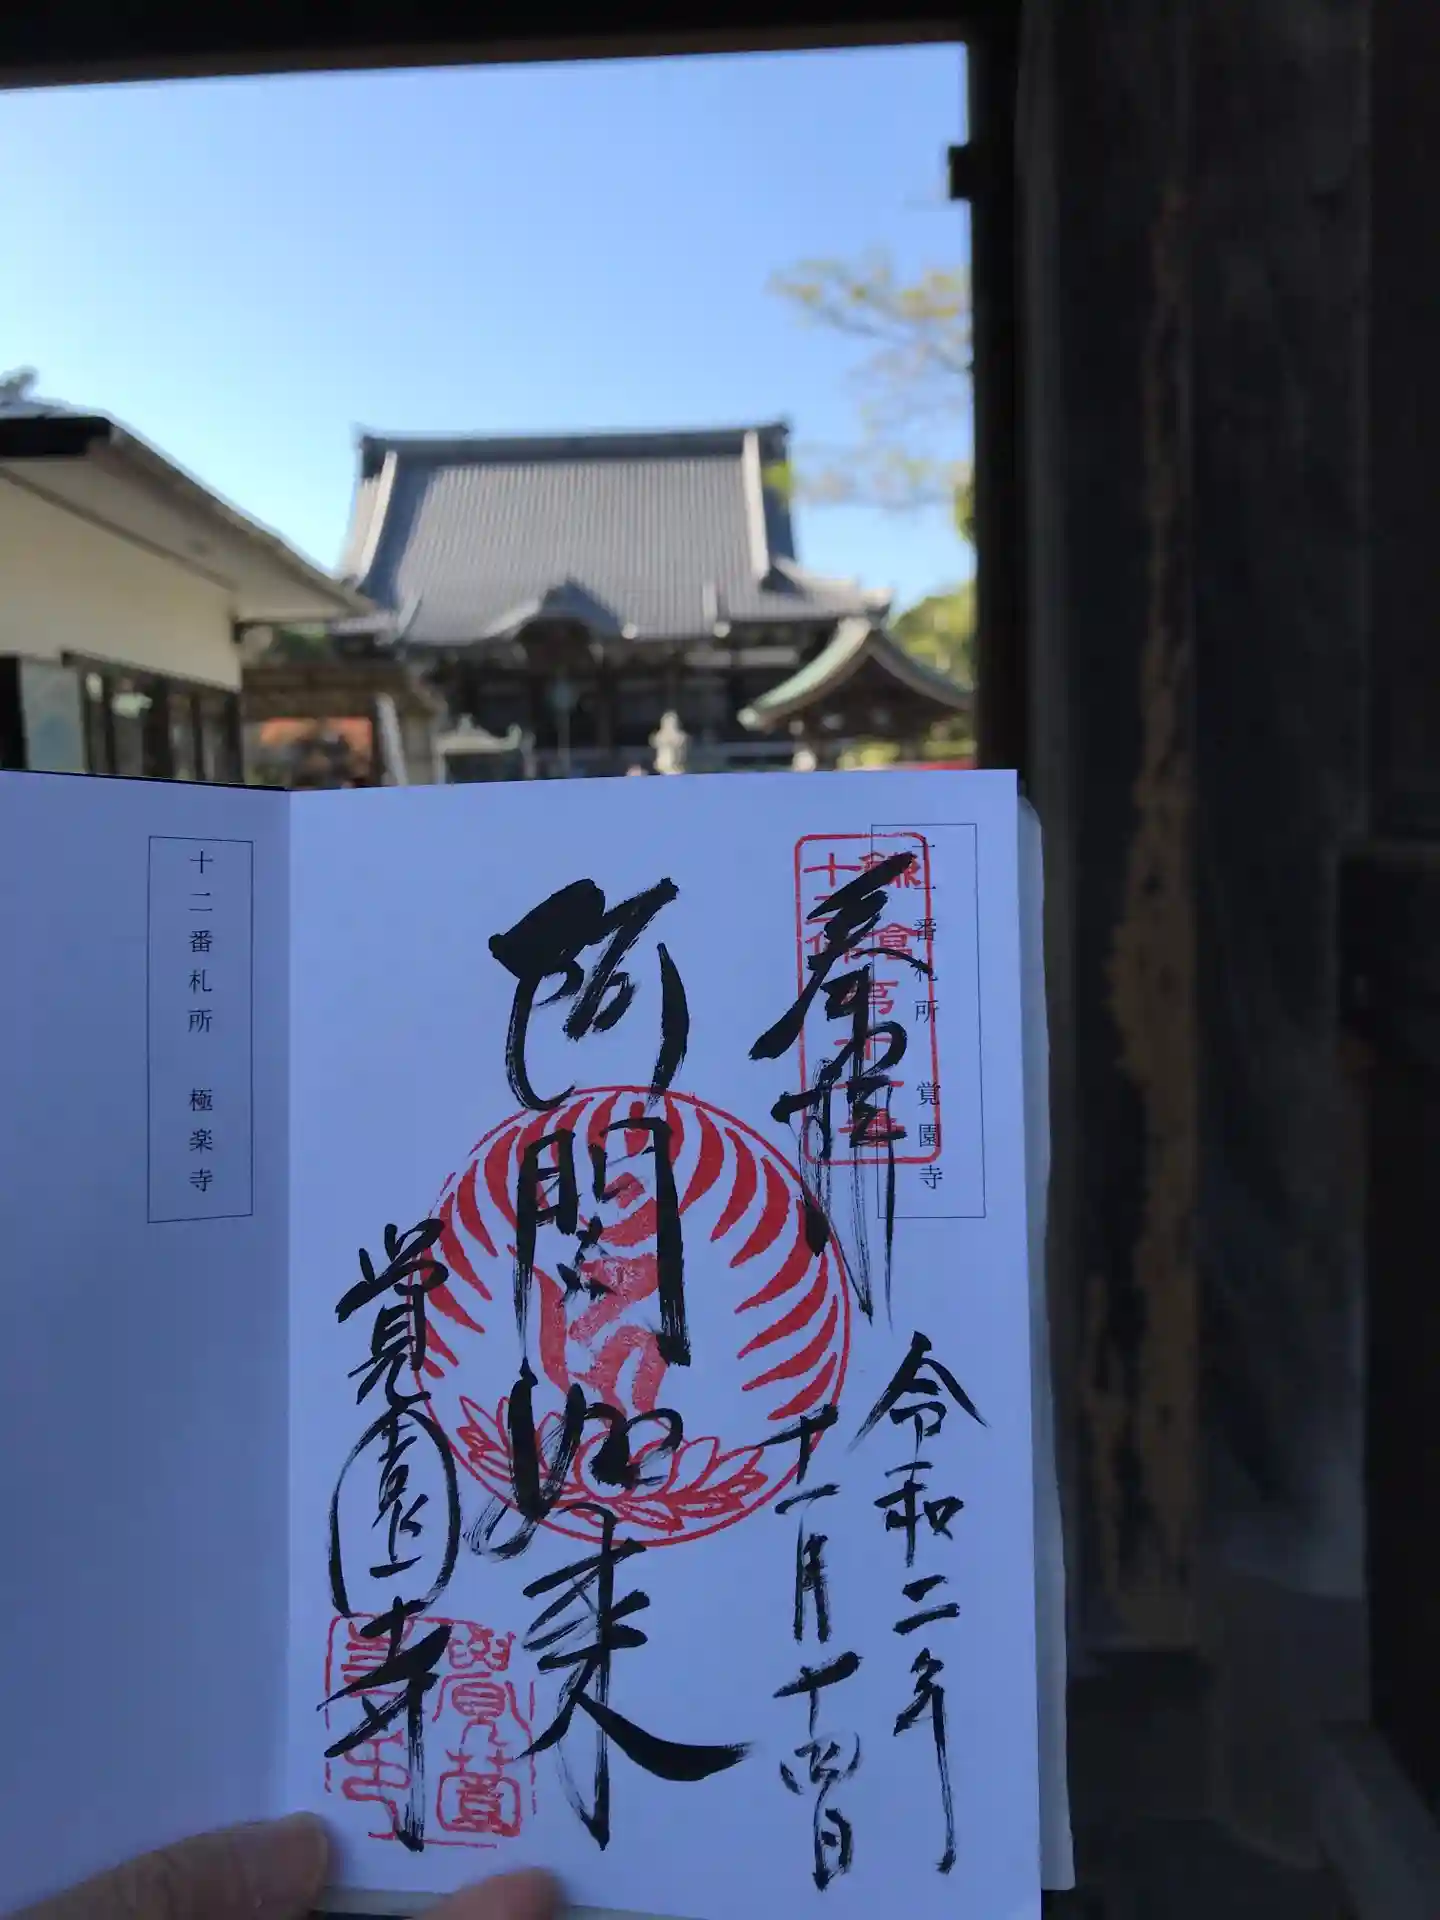 十一番札所 覚園寺
鎌倉
十三佛
奉拝
令和二年
十一月十四日
阿閦如来
覚園寺
十二番札所 極楽寺